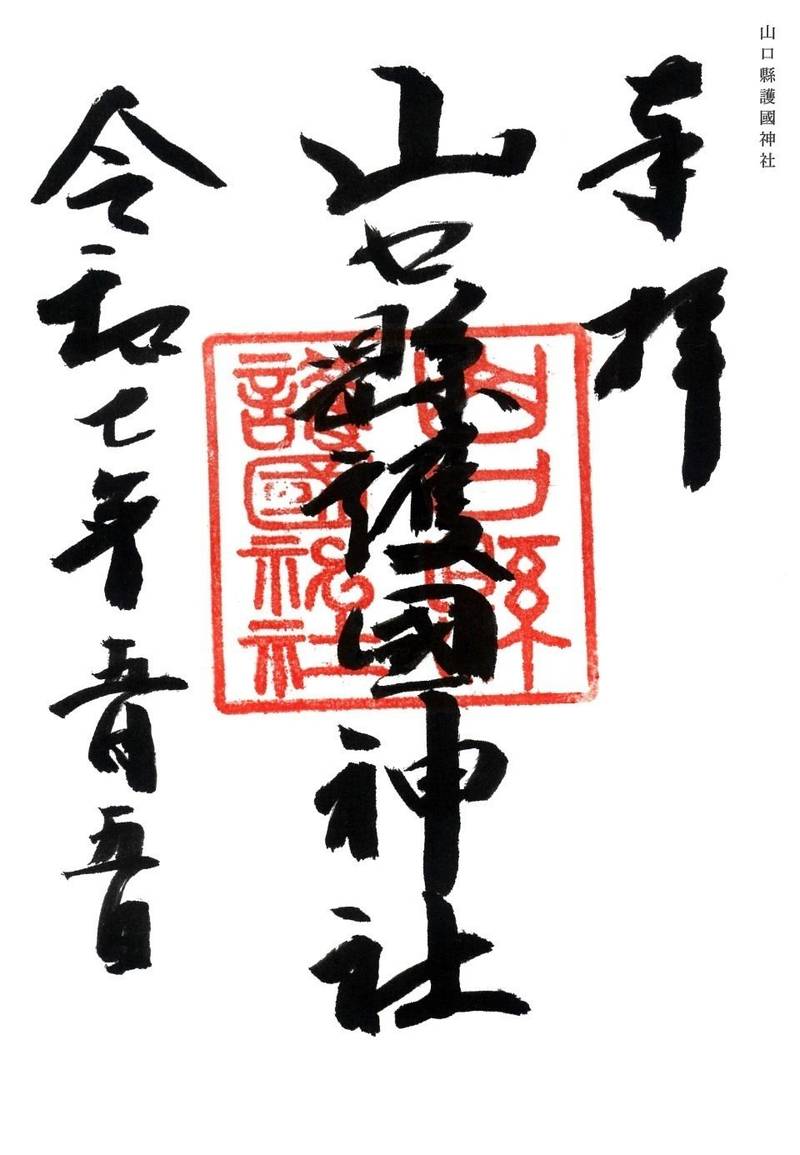 山口縣護國神社
奉拝
山口縣護國神社
山口縣
護國神社
令和七年五月五日